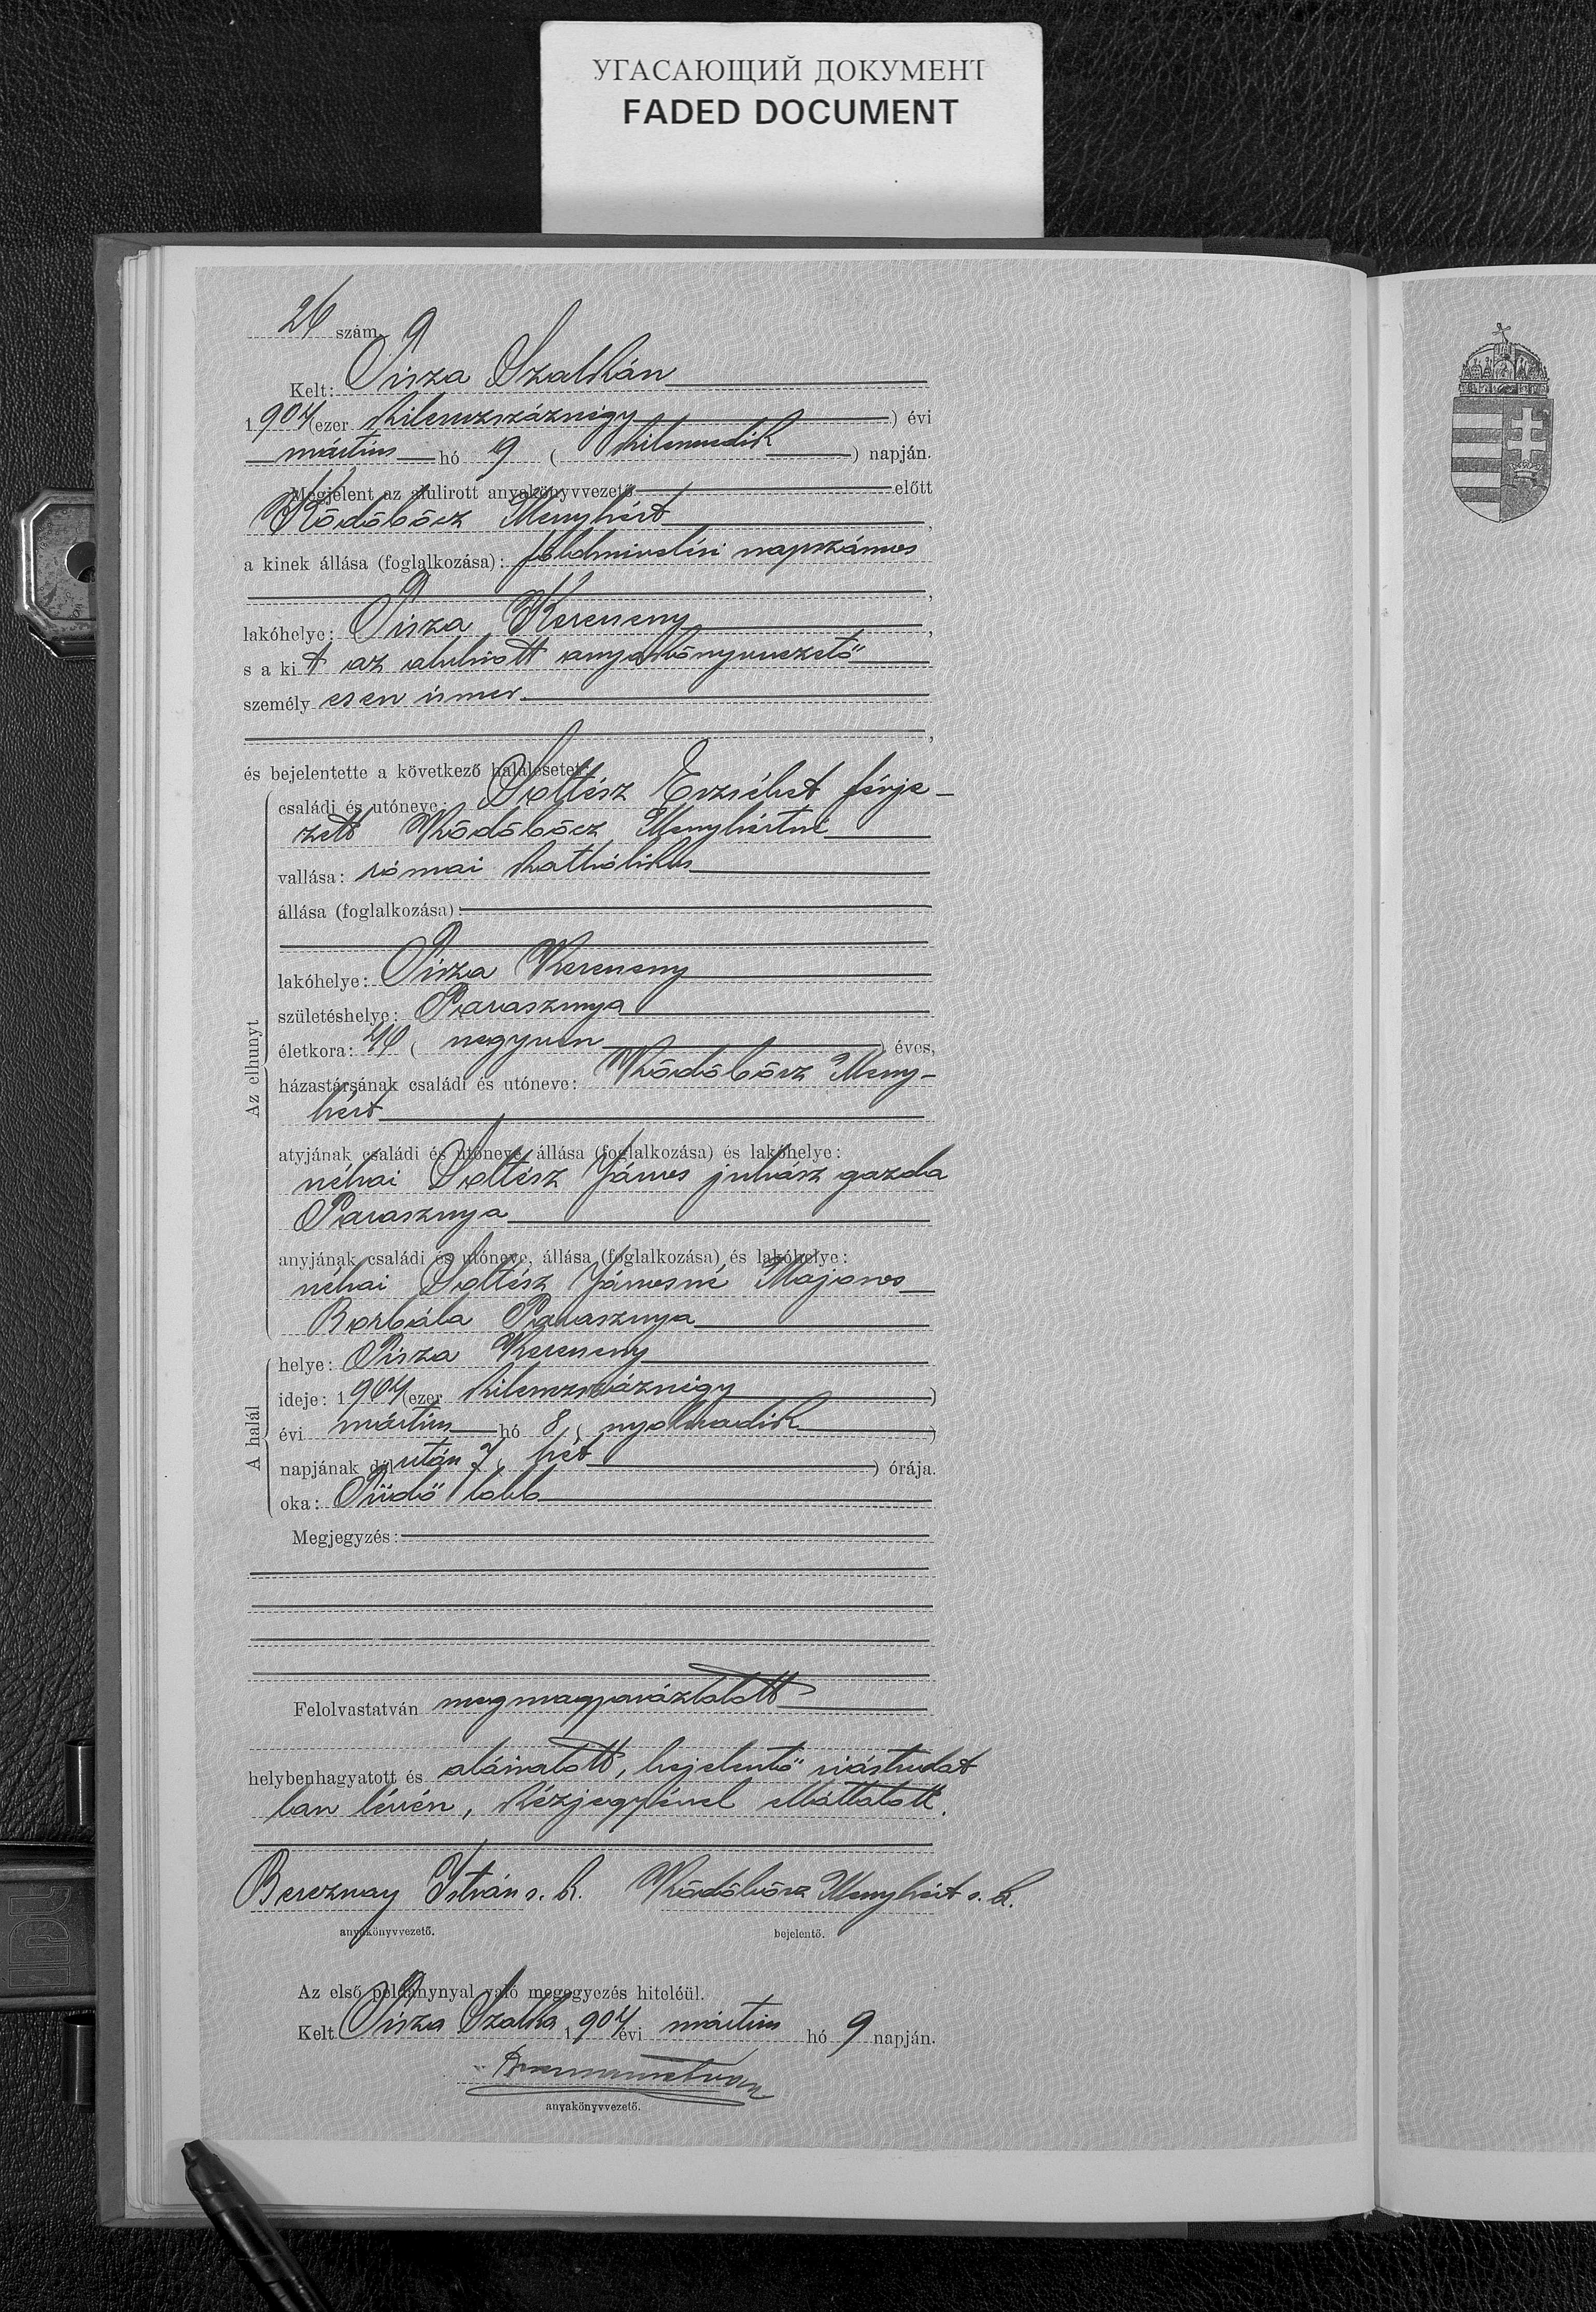 УГАСАЮЩИЙ ДОКУМЕНТ
FADED DOCUMENT
26 szám.
Kelt: Tisza Szalkán
1904 (ezer kilenczszáznégy) évi
mártius hó 9 (kilencedik) napján.
Megjelent az alulirott anyakönyvvezető előtt
Ködöböcz Menyhért,
a kinek állása (foglalkozása): földmivelési napszámos
,
lakóhelye: Tisza Kerecseny,
s a kit az alulirott anyakönyvvezető
személyesen ismer
,
és bejelentette a következő halálesetet:
Az elhunyt
családi és utóneve: Soltész Erzsébet férje-
zett Ködöböcz Menyhértné
vallása: római katholikus
állása (foglalkozása):
lakóhelye: Tisza Kerecseny
születéshelye: Parasznya
életkora: 40 (negyven) éves,
házastársának családi és utóneve: Ködöböcz Meny-
hért
atyjának családi és utóneve, állása (foglalkozása) és lakóhelye:
néhai Soltész János juhász gazda
Parasznya
anyjának családi és utóneve, állása (foglalkozása) és lakóhelye:
néhai Soltész Jánosné Majoros
Borbála Parasznya
A halál
helye: Tisza Kerecseny
ideje: 1904 (ezer kilenczszáznégy)
évi mártius hó 8 (nyolczadik)
napjának délután 7 (hét) órája.
oka: Tüdő lobb
Megjegyzés:
Felolvastatván megmagyaráztatott
helybenhagyatott és aláiratott, bejelentő irástudat
lan lévén, kézjegyével elláttatott.
Bereznay István s. k. Ködöböcz Menyhért s. k.
anyakönyvvezető. bejelentő.
Az első példánynyal való megegyezés hiteléül.
Kelt Tisza Szalka 1904 évi mártius hó 9 napján.
anyakönyvvezető.